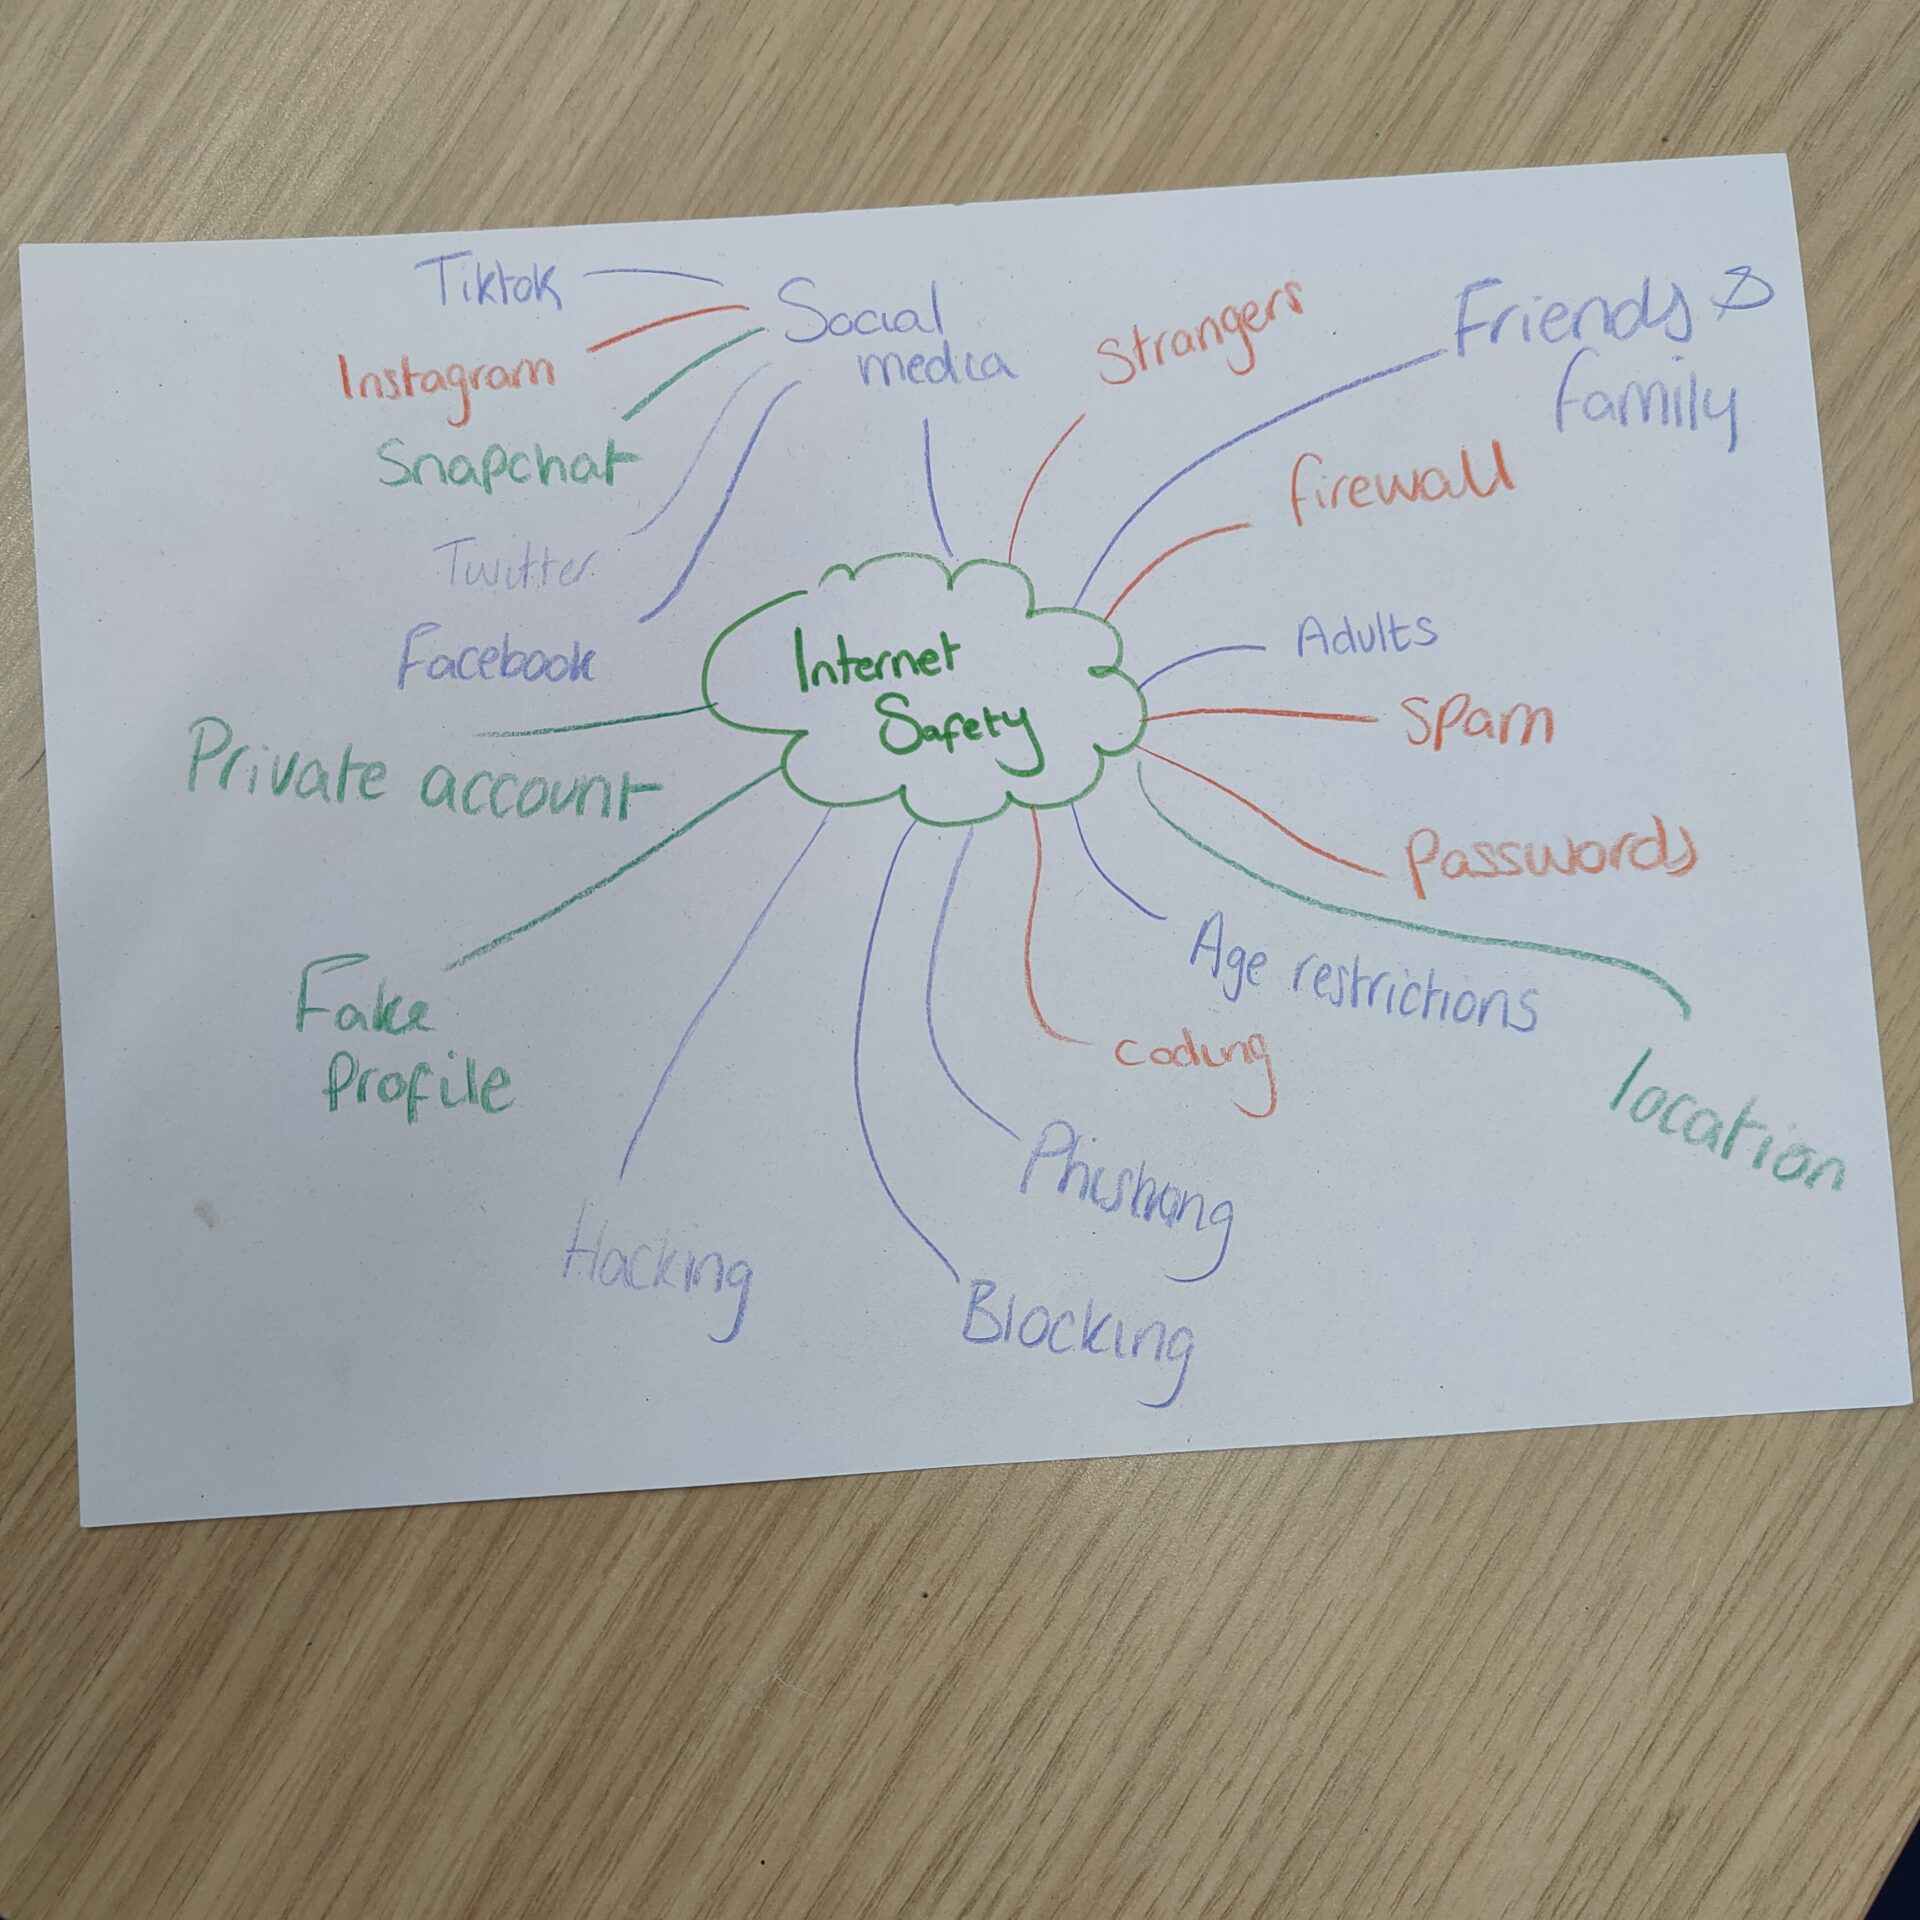 Tiktok
Social
media
Instagram
Snapchat
Twitter
Facebook
Strangers
Friends &
family
firewall
Internet
Safety
Adults
Spam
Passwords
Private account
Age restrictions
location
Fake
Profile
coding
Phishing
Hacking
Blocking